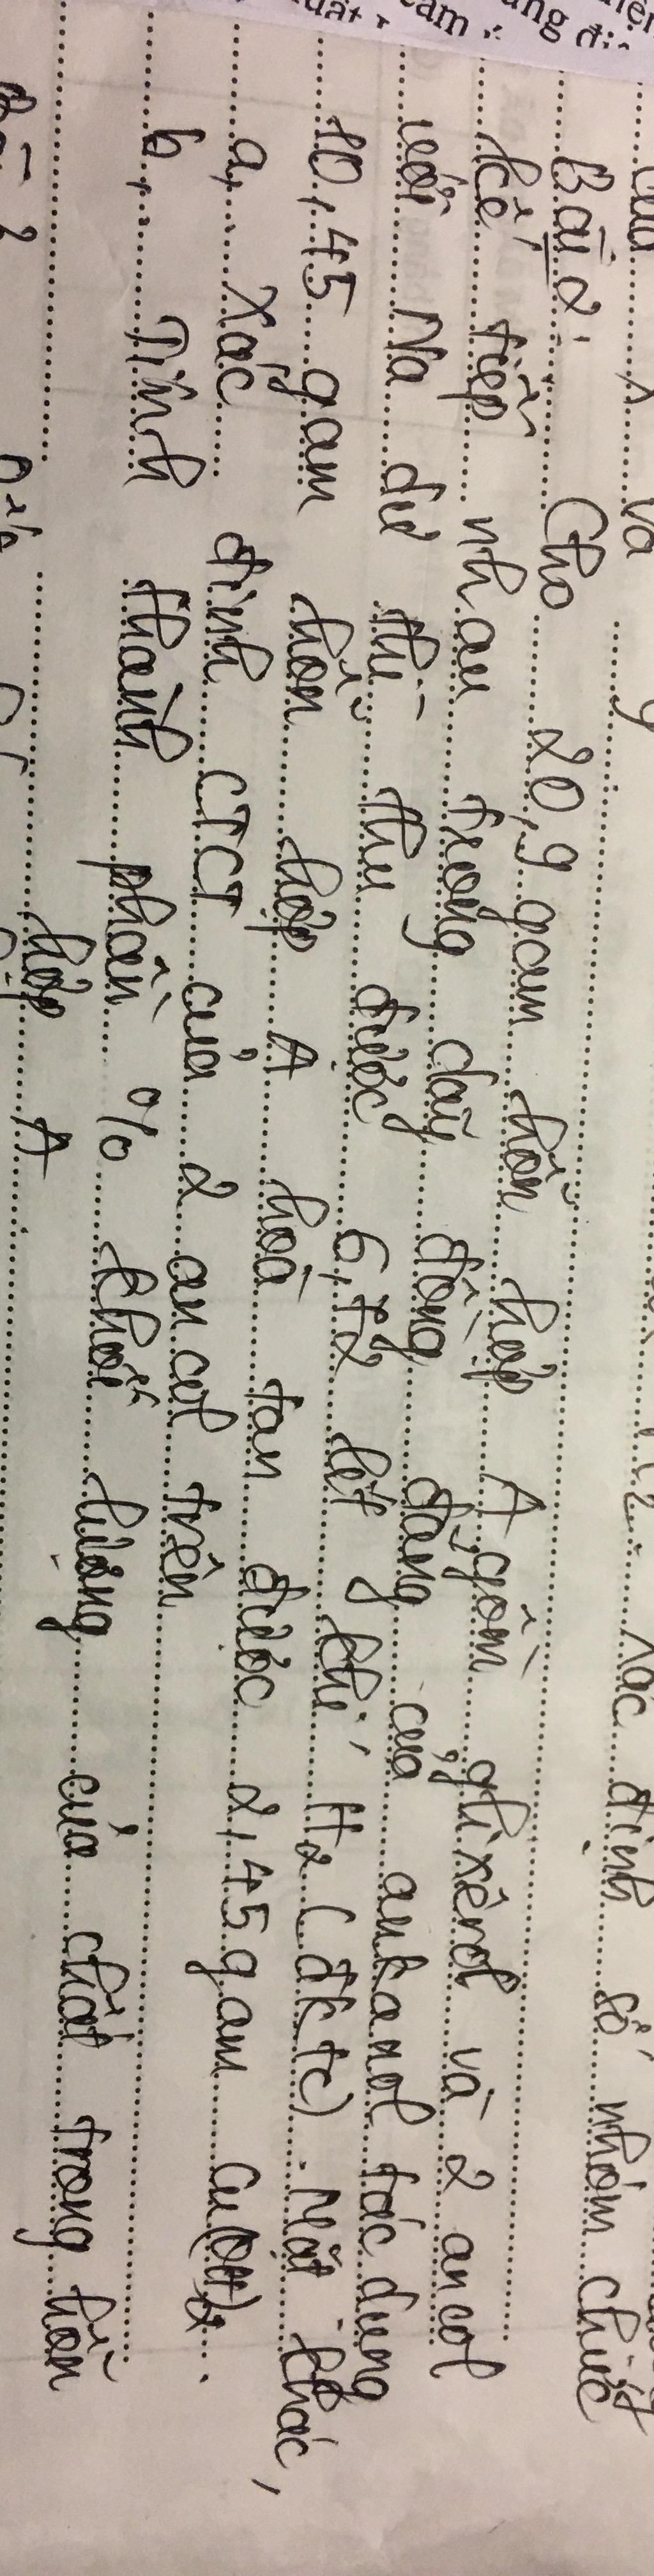 xác định số nhóm chức
Bài 2: Cho 20,9 gam hỗn hợp A gồm glixêrol và 2 ancol
kế tiếp nhau trong dãy đồng đẳng của ankanol tác dụng
với Na dư thì thu được 6,72 lít khí H2 (đktc). Mặt khác,
10,45 gam hỗn hợp A hoà tan được 2,45 gam Cu(OH)2.
a, Xác định CTCT của 2 ancol trên
b, Tính thành phần % khối lượng của chất trong hỗn
hợp A